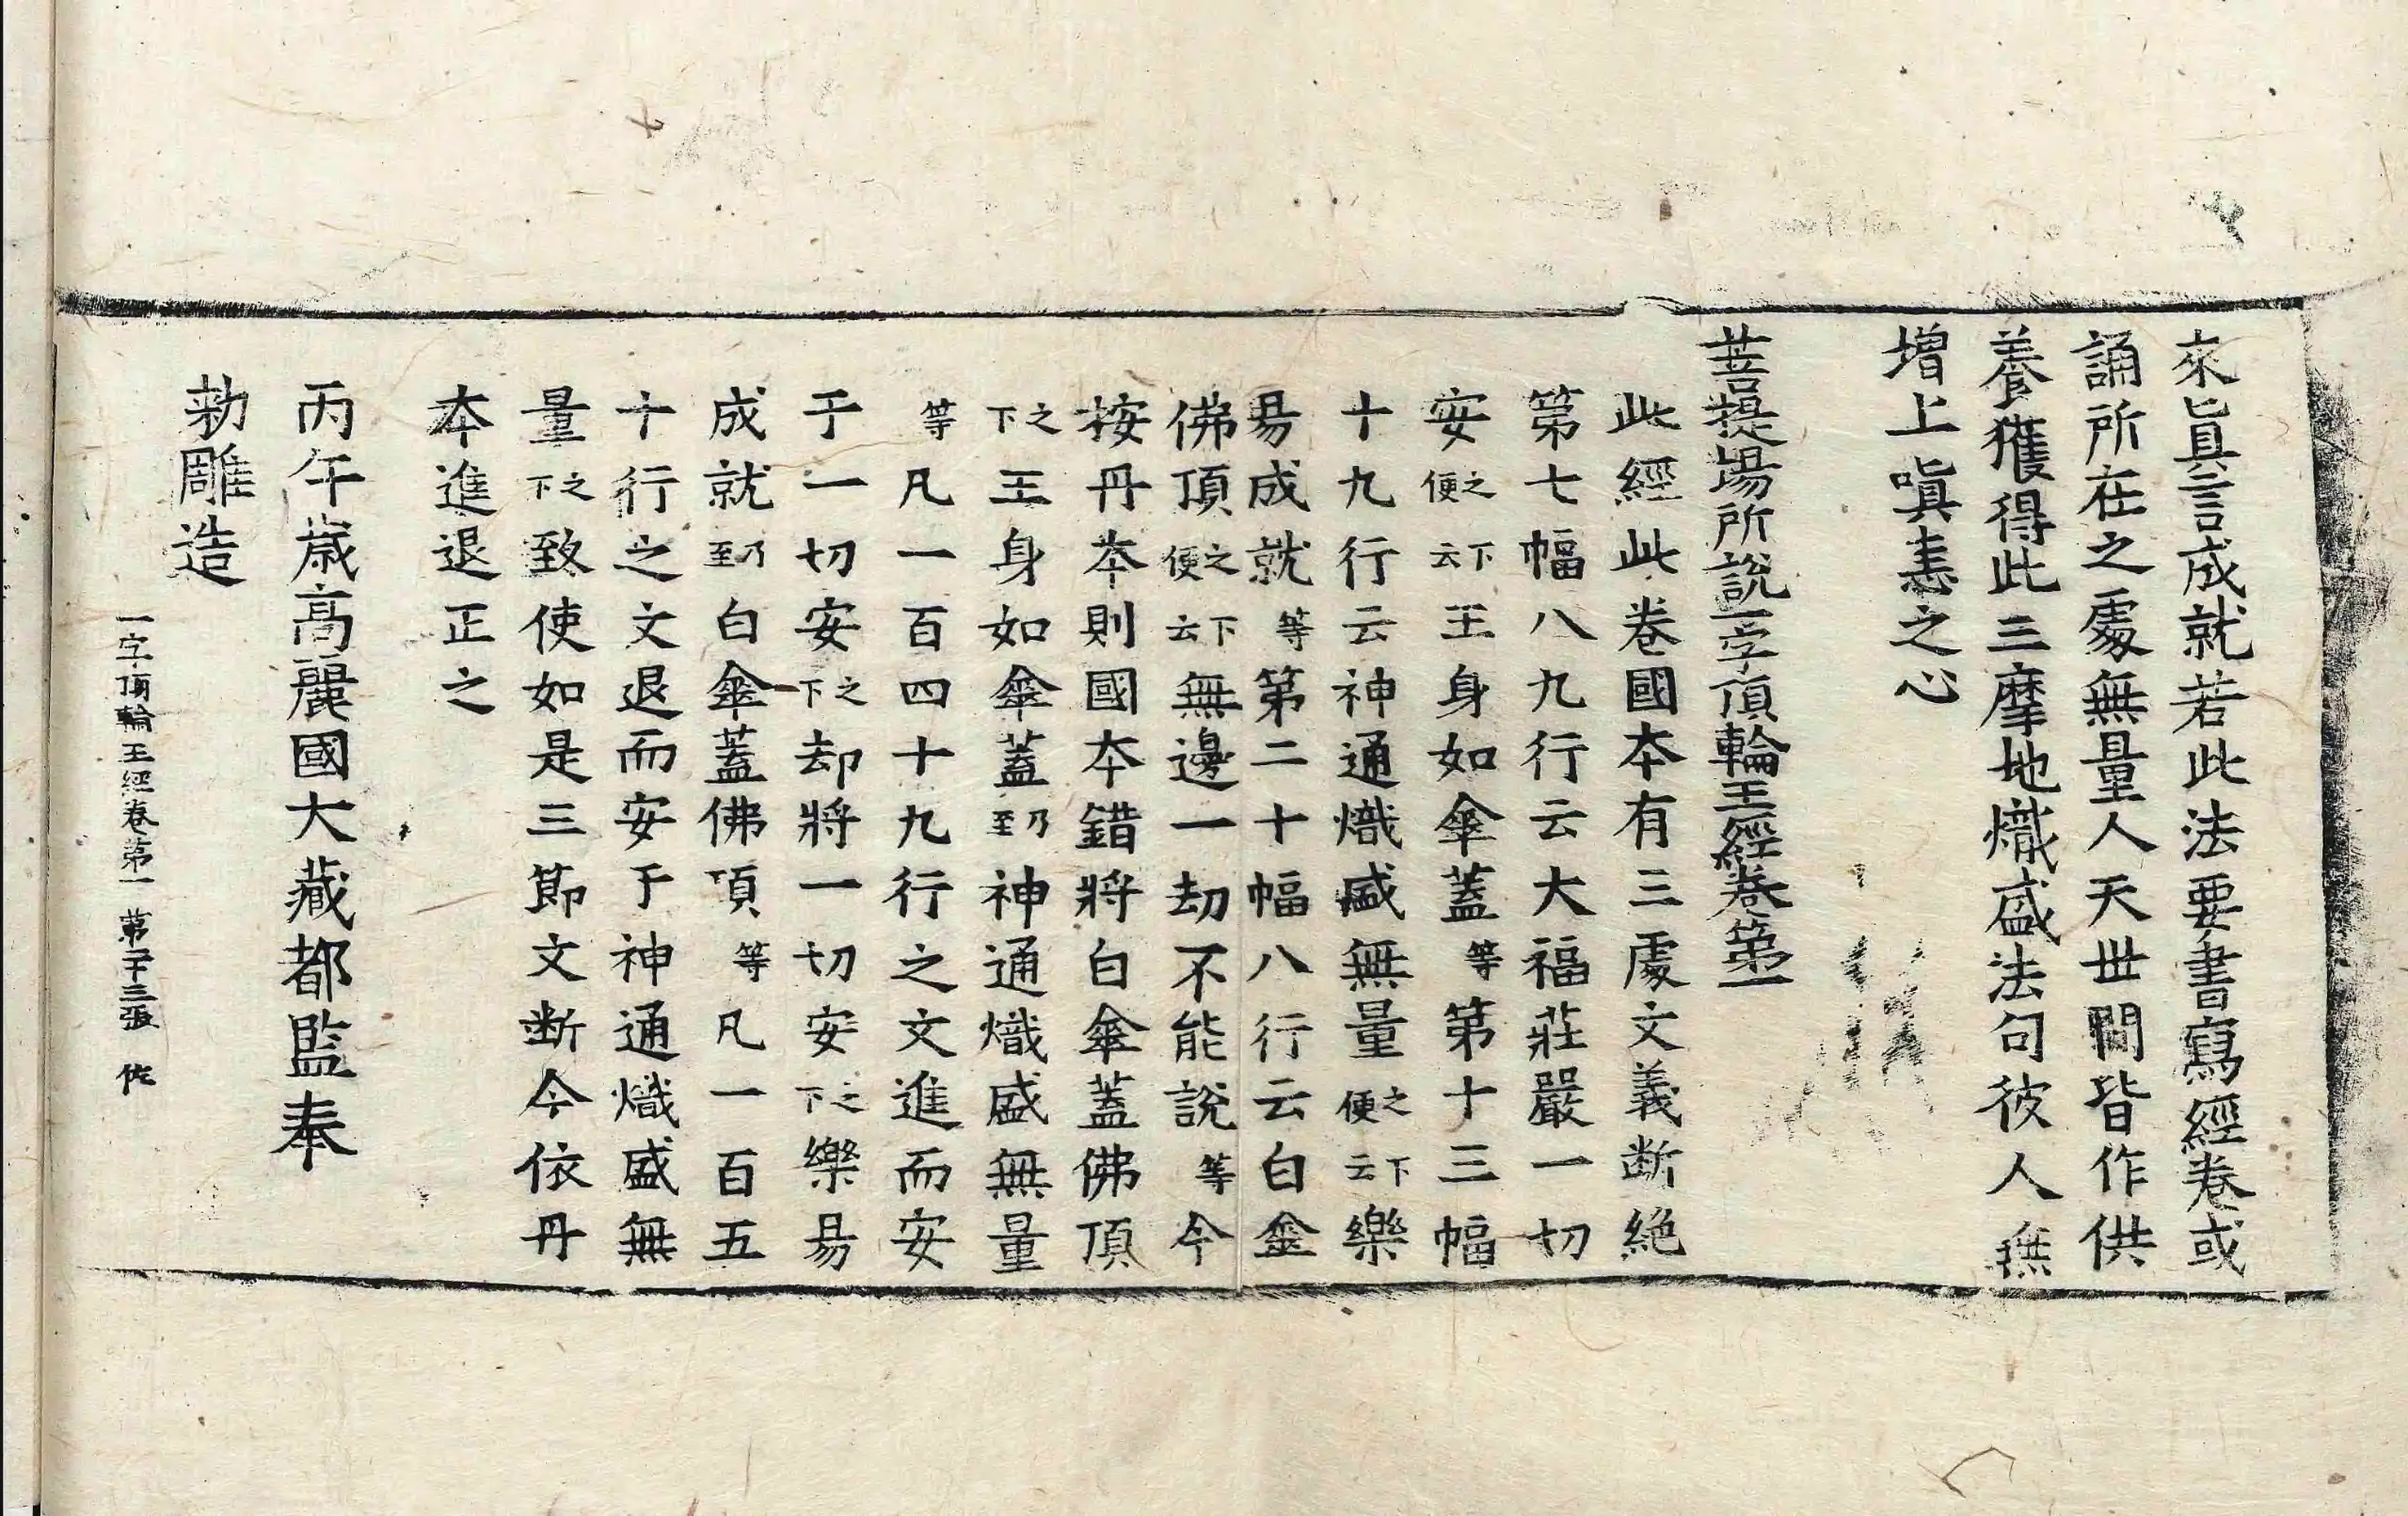 來眞言成就若此法要書寫經卷或
誦所在之處無量人天世間皆作供
養獲得此三摩地熾盛法句彼人無
增上嗔恚之心
菩提場所說一字頂輪王經卷第一
此經此卷國本有三處文義断絶
第七幅八九行云大福莊嚴一切
安之下便云下王身如傘蓋等第十三幅
十九行云神通熾盛無量之下便云下樂
易成就等第二十幅八行云白傘
佛頂之下便云無邊一劫不能說等今
按丹本則國本錯將白傘蓋佛頂
之下王身如傘蓋乃至神通熾盛無量
等凡一百四十九行之文進而安
于一切安之下却將一切安之下樂易
成就乃至白傘蓋佛頂等凡一百五
十行之文退而安于神通熾盛無
量之下致使如是三節文断今依丹
本進退正之
丙午歲高麗國大藏都監奉
勅雕造
一字頂輪王經卷第一 第二十三張 佐